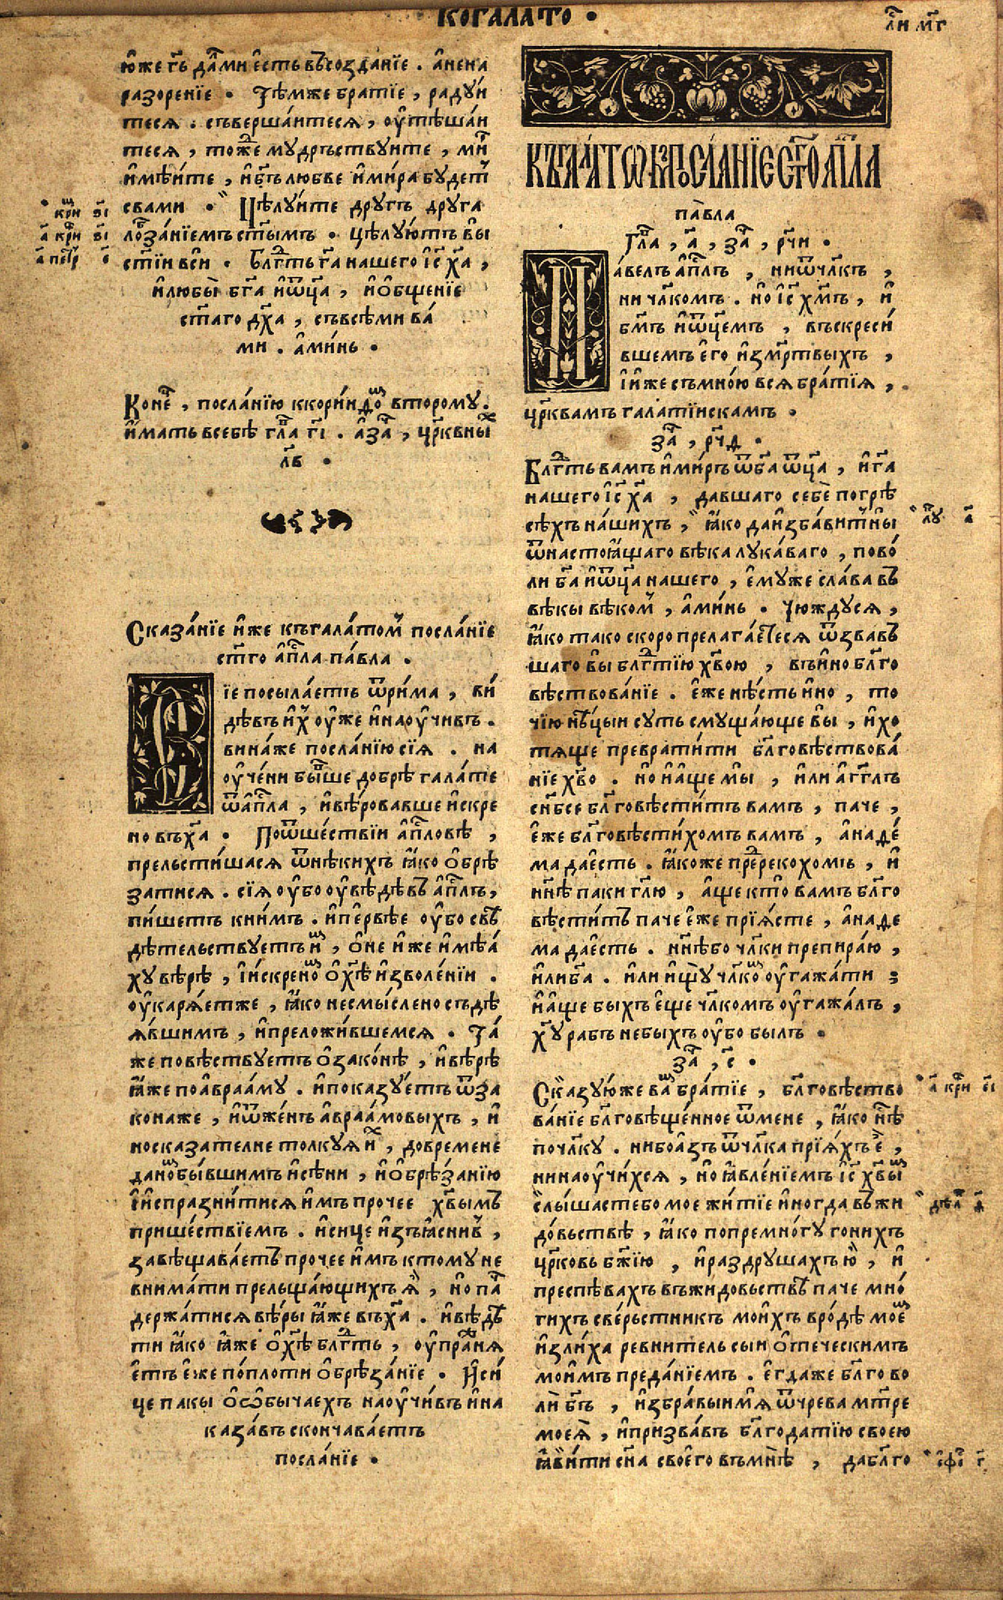 КОГАЛАТО •
юже гь дами есть въсозданїе . анена
разоренїе • Тѣмже братїе , радуи
теся . съвершаитеся , оутѣшаи
теся , тоже мудръствуите , ми
имѣите , ибгъ любве имира будет
свами • Цѣлуите другъ друга
лобзанїемъ стымъ • цѣлуютъ вы
стїи вси • Блгть га нашего іс ха ,
илюбы бга иоца , иобщенїе
стаго дха , съвсѣми ва
ми . аминь •
Коне , посланїю ккоринѳо второму .
имать всебѣ гла гі . аза , црквны
лв •
Сказанїе иже къгалатом посланїе
стго апла павла .
Сїе посылаеть ѿрима , ви
дѣвъ их оуже инаоучивъ .
винаже посланїю сїя . на
оучени бывше добрѣ галате
ѿапла , ивѣровавше искре
но въха • Поѿшествїи апловѣ ,
прельстишася ѿнѣкихъ яко обрѣ
затися . сїя оубо оувѣдѣвъ аплъ ,
пишетъ книмъ . ипервѣе оубо свѣ
дѣтельствуетъ и , оне иже имѣа
ху вѣрѣ , іискрено охѣ изволенїи .
оукаряетже , яко несмыслено съдѣ
явшимъ , ипреложившемся • Та
же повѣствуетъ озаконѣ , ивѣрѣ
яже поаврааму . ипоказуетъ ѿза
конаже , иѿженъ авраамовыхъ , и
носказателне толкуя и , довремене
дано бывшимъ исѣни , иобрѣзанїю
іиспразнитися имъ прочее хвымъ
пришествїемъ . исице изъяснив ,
завѣщаваетъ прочее имъ ктому не
внимати прельщающихъ я , но па
держатися вѣры яже въха . ивѣдѣ
ти яко яже охѣ блгть , оупраня
етъ еже поплоти обрѣзанїе • Иси
це пакы оособычаехъ наоучивъ ина
казавъ скончаваетъ
посланїе •
КЪГАЛАТѠ . ПОСЛАНЇЕ СТГО АПЛА
павла
Гла , а , за , рчи •
Павелъ аплъ , ниѿчлкъ ,
ни члкомъ . но іс хмъ , и
бгмъ иоцемъ , въскреси
вшемъ его измртвыхъ ,
іиже съмною вся братїя ,
црквамъ галатїискамъ .
за , рчд •
Блгть вамъ имиръ ѿба оца , ига
нашего іс ха , давшаго себе погрѣ
сѣхъ нашихъ , яко даизбавитны
ѿнастоящаго вѣка лукаваго , пово
ли ба иоца нашего , емуже слава въ
вѣкы вѣком , аминь • Чюждуся ,
яко тако скоро прелагаетеся ѿзвавъ
шаго вы блгтїю хвою , въино блго
вѣствованїе . еже нѣсть ино , то
чїю нѣцыи суть смущающе вы , ихо
тяще превратити блговѣствова
нїе хво . но иаще мы , или агглъ
снбсе блговѣститъ вамъ , паче ,
еже блговѣстихомъ вамъ , анаде
ма даесть . якоже пререкохомъ , и
ннѣ паки глю , аще кто вамъ блго
вѣститъ паче еже прїясте , анаде
ма даесть . ннѣ бо члки препираю ,
илиба . или ищу члко оугажати ;
иаще быхъ еще члкомъ оугажалъ ,
ху рабъ небыхъ оубо былъ •
за , ре •
Сказуюже ва братїе , блговѣство
ванїе блговѣщенное ѿмене , яко нѣ
почлку . нибоазъ ѿчлка прїяхъ е ,
нинаоучихся , но явленїемъ іс хвы
слышастебо мое житїе иногда въжи
довьствѣ , яко попремногу гонихъ
црковь бжїю , ираздрушахъ ю , и
преспѣвахъ въжидовьствѣ паче мно
гихъ сверьстникъ моихъ вродѣ мое
излиха ревнитель сыи отеческимъ
моимъ преданїемъ . егдаже блгово
ли бгъ , избравыимя ѿчрева мтре
моея , ипризвавъ блгодатїю своею
явити сна своего вънѣ , даблго